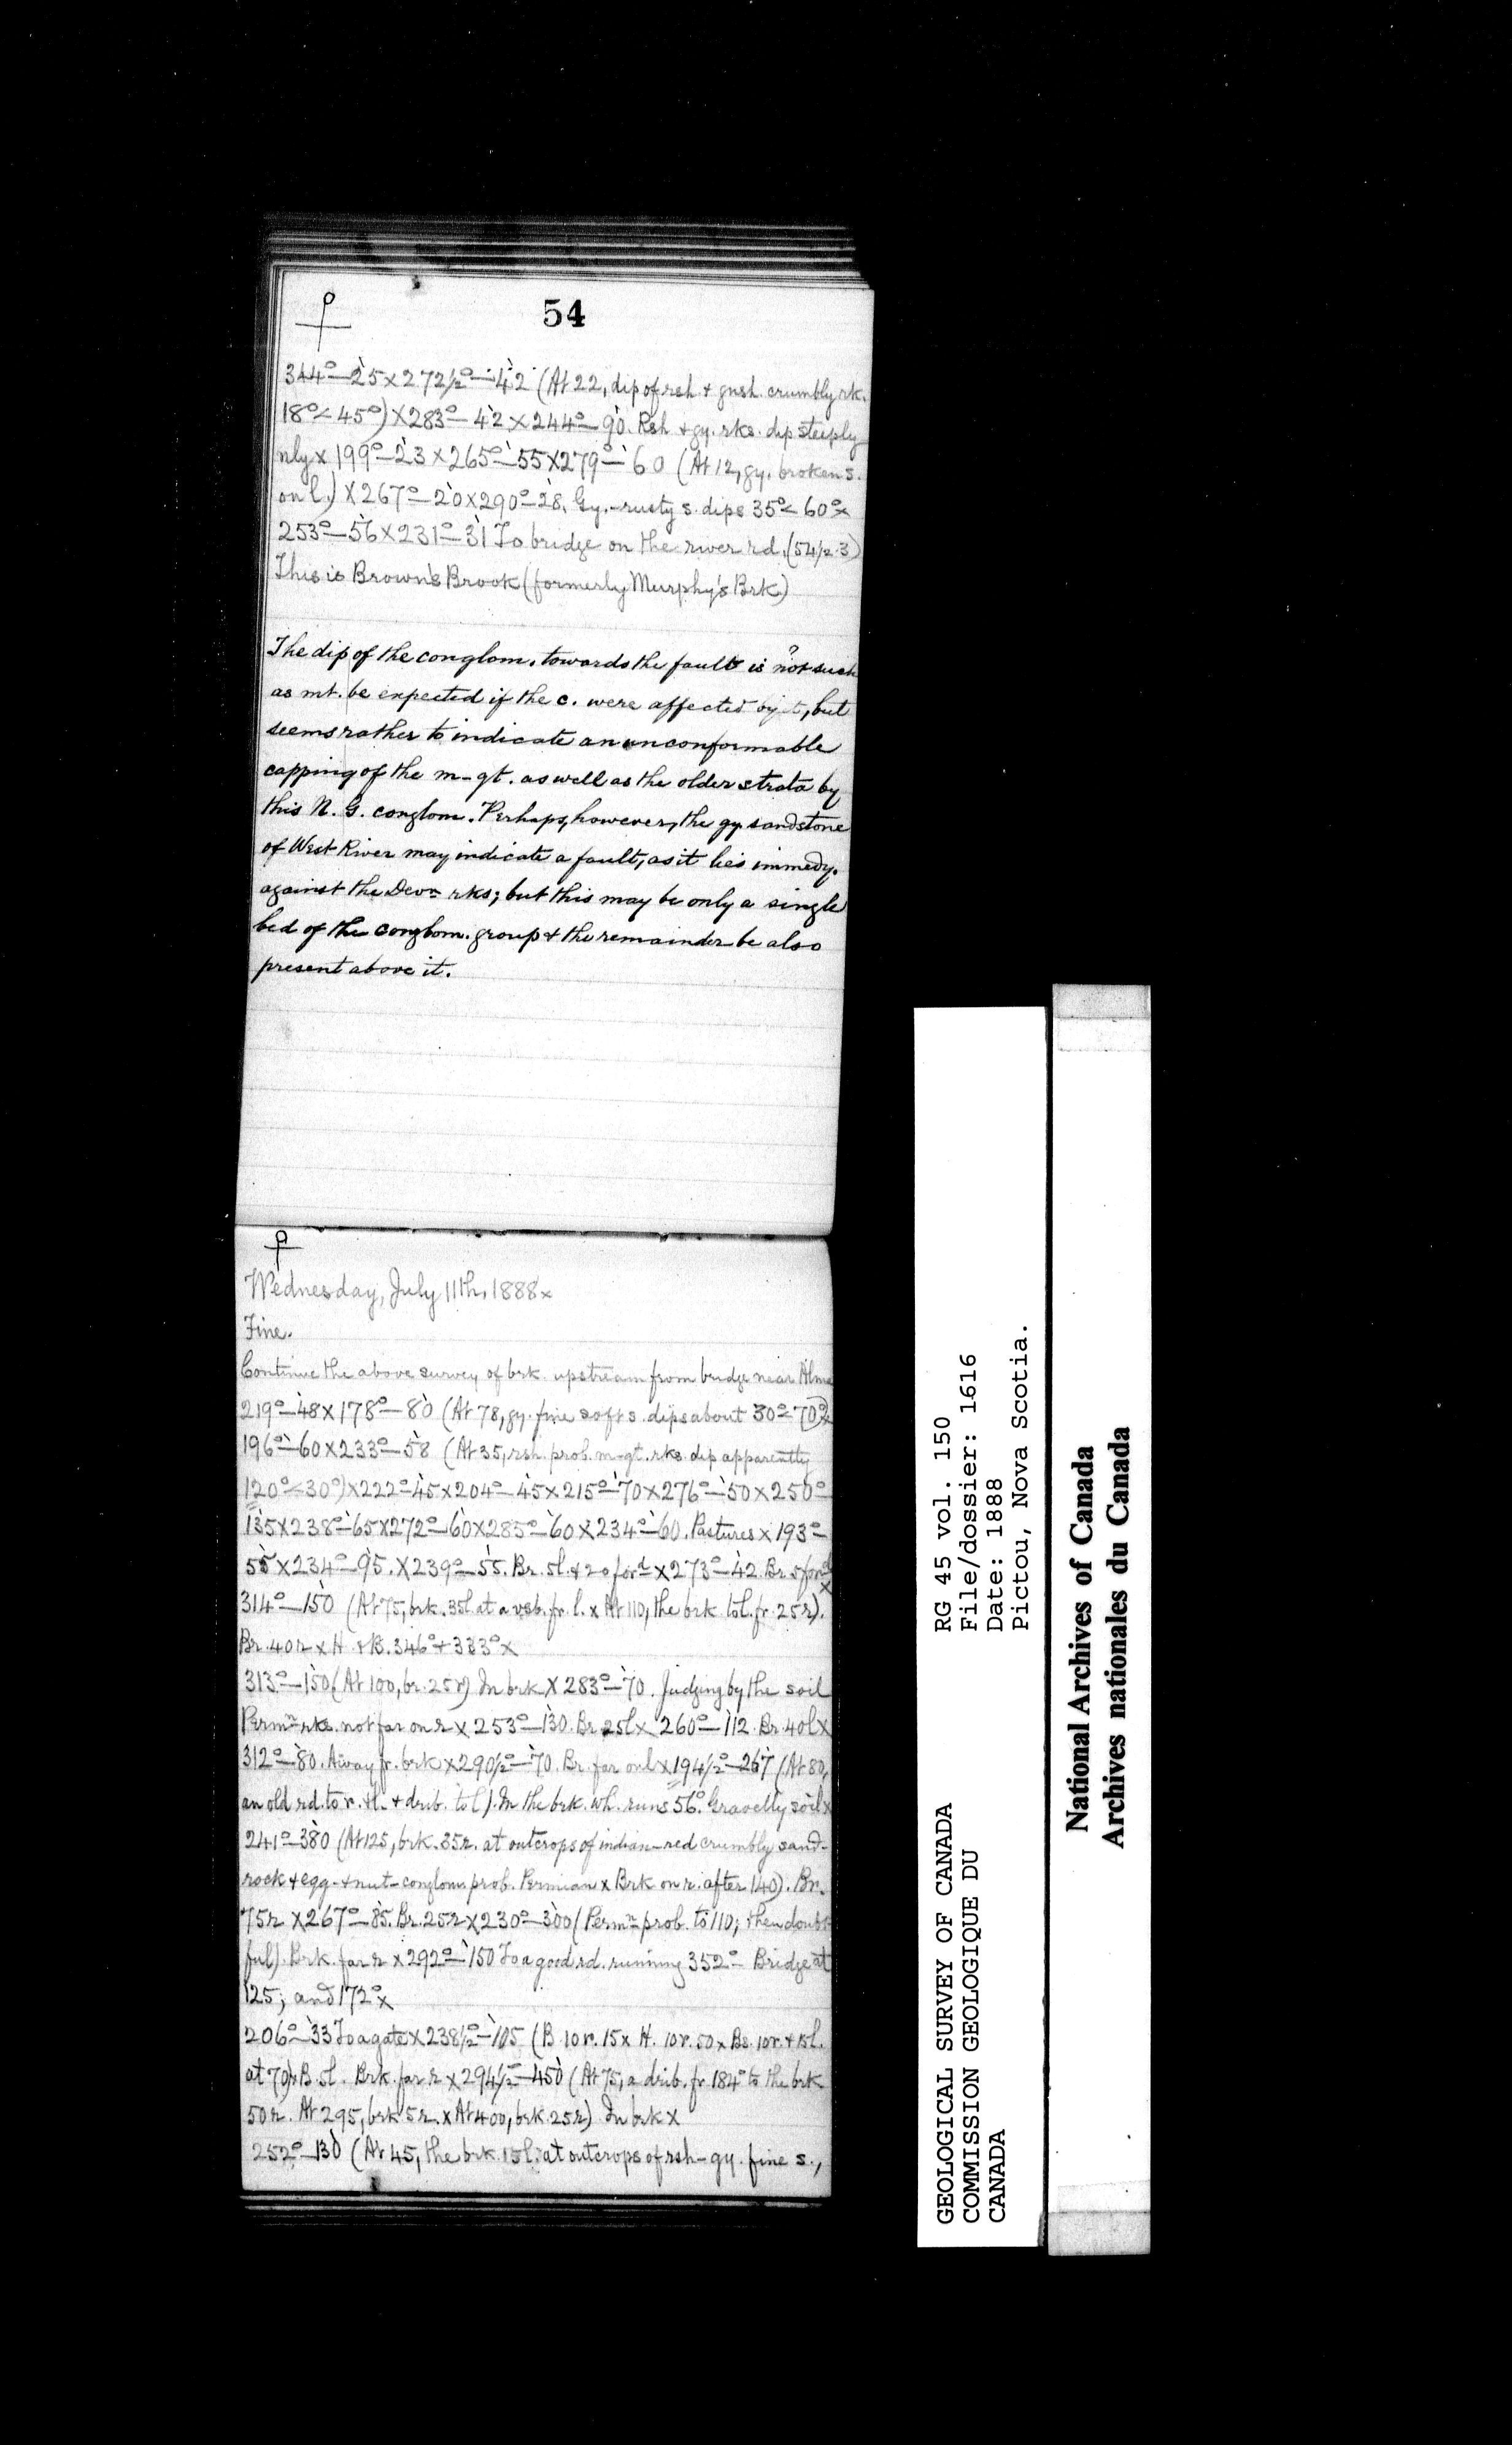 54
344°–25 x 272½°–42 (At 22, dip of rsh. + gnsh. crumbly rk.
18° < 45°) x 283°–42 x 244°–90. Rsh + gy. rks. dip steeply
nly x 199°–23 x 265°–55 x 279°–60 (At 12, gy. broken s.
on l.) x 267°–20 x 290°–28. Gy.-rusty s. dips 35° < 60° x
253°–56 x 231°–31 To bridge on the river rd. (54½.3)
This is Brown's Brook (formerly Murphy's Brk.)
The dip of the conglom. towards the fault is not ? such
as mt. be expected if the c. were affected by it, but
seems rather to indicate an unconformable
capping of the m-gt. as well as the older strata by
this N. G. conglom. Perhaps, however, the gy. sandstone
of West River may indicate a fault, as it lies immedy.
against the Devn rks; but this may be only a single
bed of the conglom. group + the remainder be also
present above it.
Wednesday, July 11th, 1888 x
Fine.
Continue the above survey of brk. upstream from bridge near Alma
219°–48 x 178°–80 (At 78, gy. fine soft s. dips about 30° < 70°) x
196°–60 x 233°–58 (At 35, rsh. prob. m-gt. rks. dip apparently
120° < 30°) x 222°–45 x 204°–45 x 215°–70 x 276°–50 x 250°–
135 x 238°–65 x 272°–60 x 285°–60 x 234°–60. Pastures x 193°–
55 x 234°–95. x 239°–55. Br. 5l. + 20 ford x 273°–42. Br. 5 ford x
314°–150 (At 75, brk. 35l. at a vsb. fr. l. x At 110, the brk. to l. fr. 25r).
Br. 40r x H. + B. 346° + 333° x
313°–150 (At 100, br. 25r) In brk x 283°–70. Judging by the soil
Permn rks. not far on r x 253°–130. Br. 25l x 260°–112. Br. 40l x
312°–80. Away fr. brk x 290½°–70. Br. far on l x 194½°–267 (At 80,
an old rd. to r. + l. + drib. to l). In the brk. wh. runs 56°. Gravelly soil x
241°–380 (At 125, brk. 35r. at outcrops of indian-red crumbly sand-
rock + egg- + nut-conglom. prob. Permian x Brk on r. after 140). Br.
75r x 267°–85. Br. 25r x 230°–300 (Permn prob. to 110; then doubt-
ful). Brk. far r x 292°–150 To a good rd. running 352°– Bridge at
125; and 172° x
206°–33 To a gate x 238½°–105 (B. 10r. 15 x H. 10r. 50 x Bs. 10r. + 15l.
at 70) x B. 5l. Brk. far r x 294½°–450 (At 75, a drib. fr. 184° to the brk
50r. At 295, brk 5r. x At 400, brk. 25r) In brk x
252°–130 (At 45, the brk. 15l. at outcrops of rsh-gy. fine s.,
GEOLOGICAL SURVEY OF CANADA
COMMISSION GEOLOGIQUE DU
CANADA
RG 45 vol. 150
File/dossier: 1616
Date: 1888
Pictou, Nova Scotia.
National Archives of Canada
Archives nationales du Canada